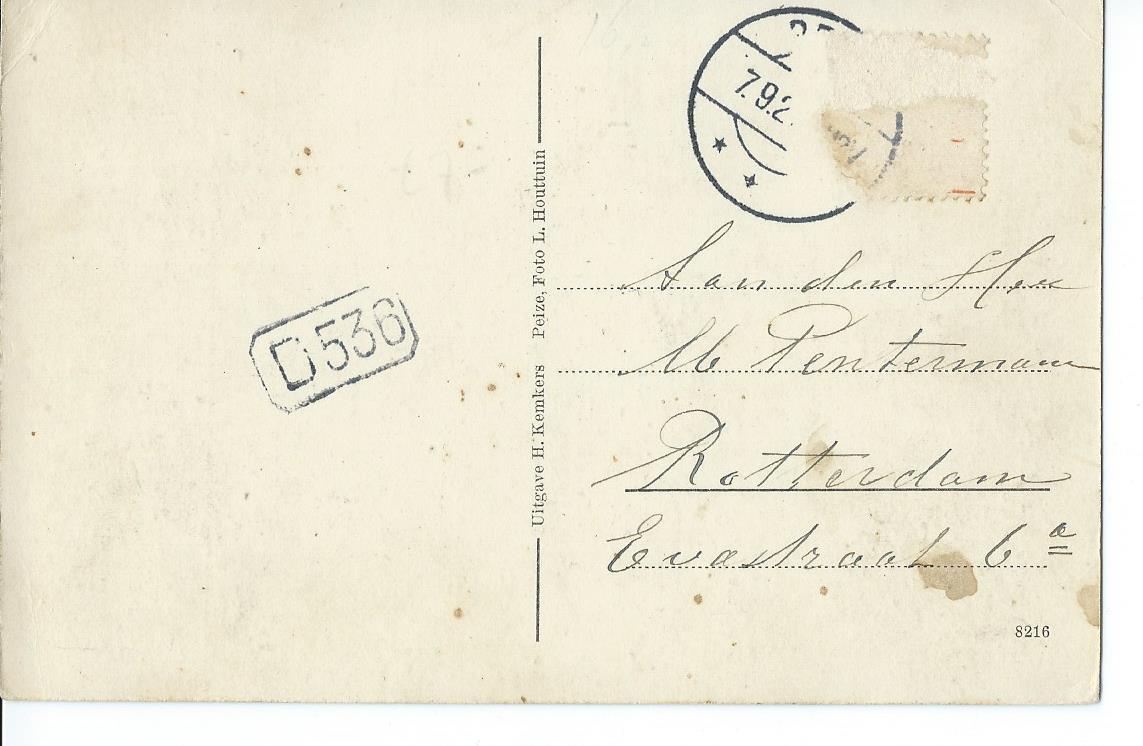 7.9.2
D536
Uitgave H. Kemkers Peize, Foto L. Houttuin
Aan den Heer
M Penterman
Rotterdam
Evastraat 6 a
8216